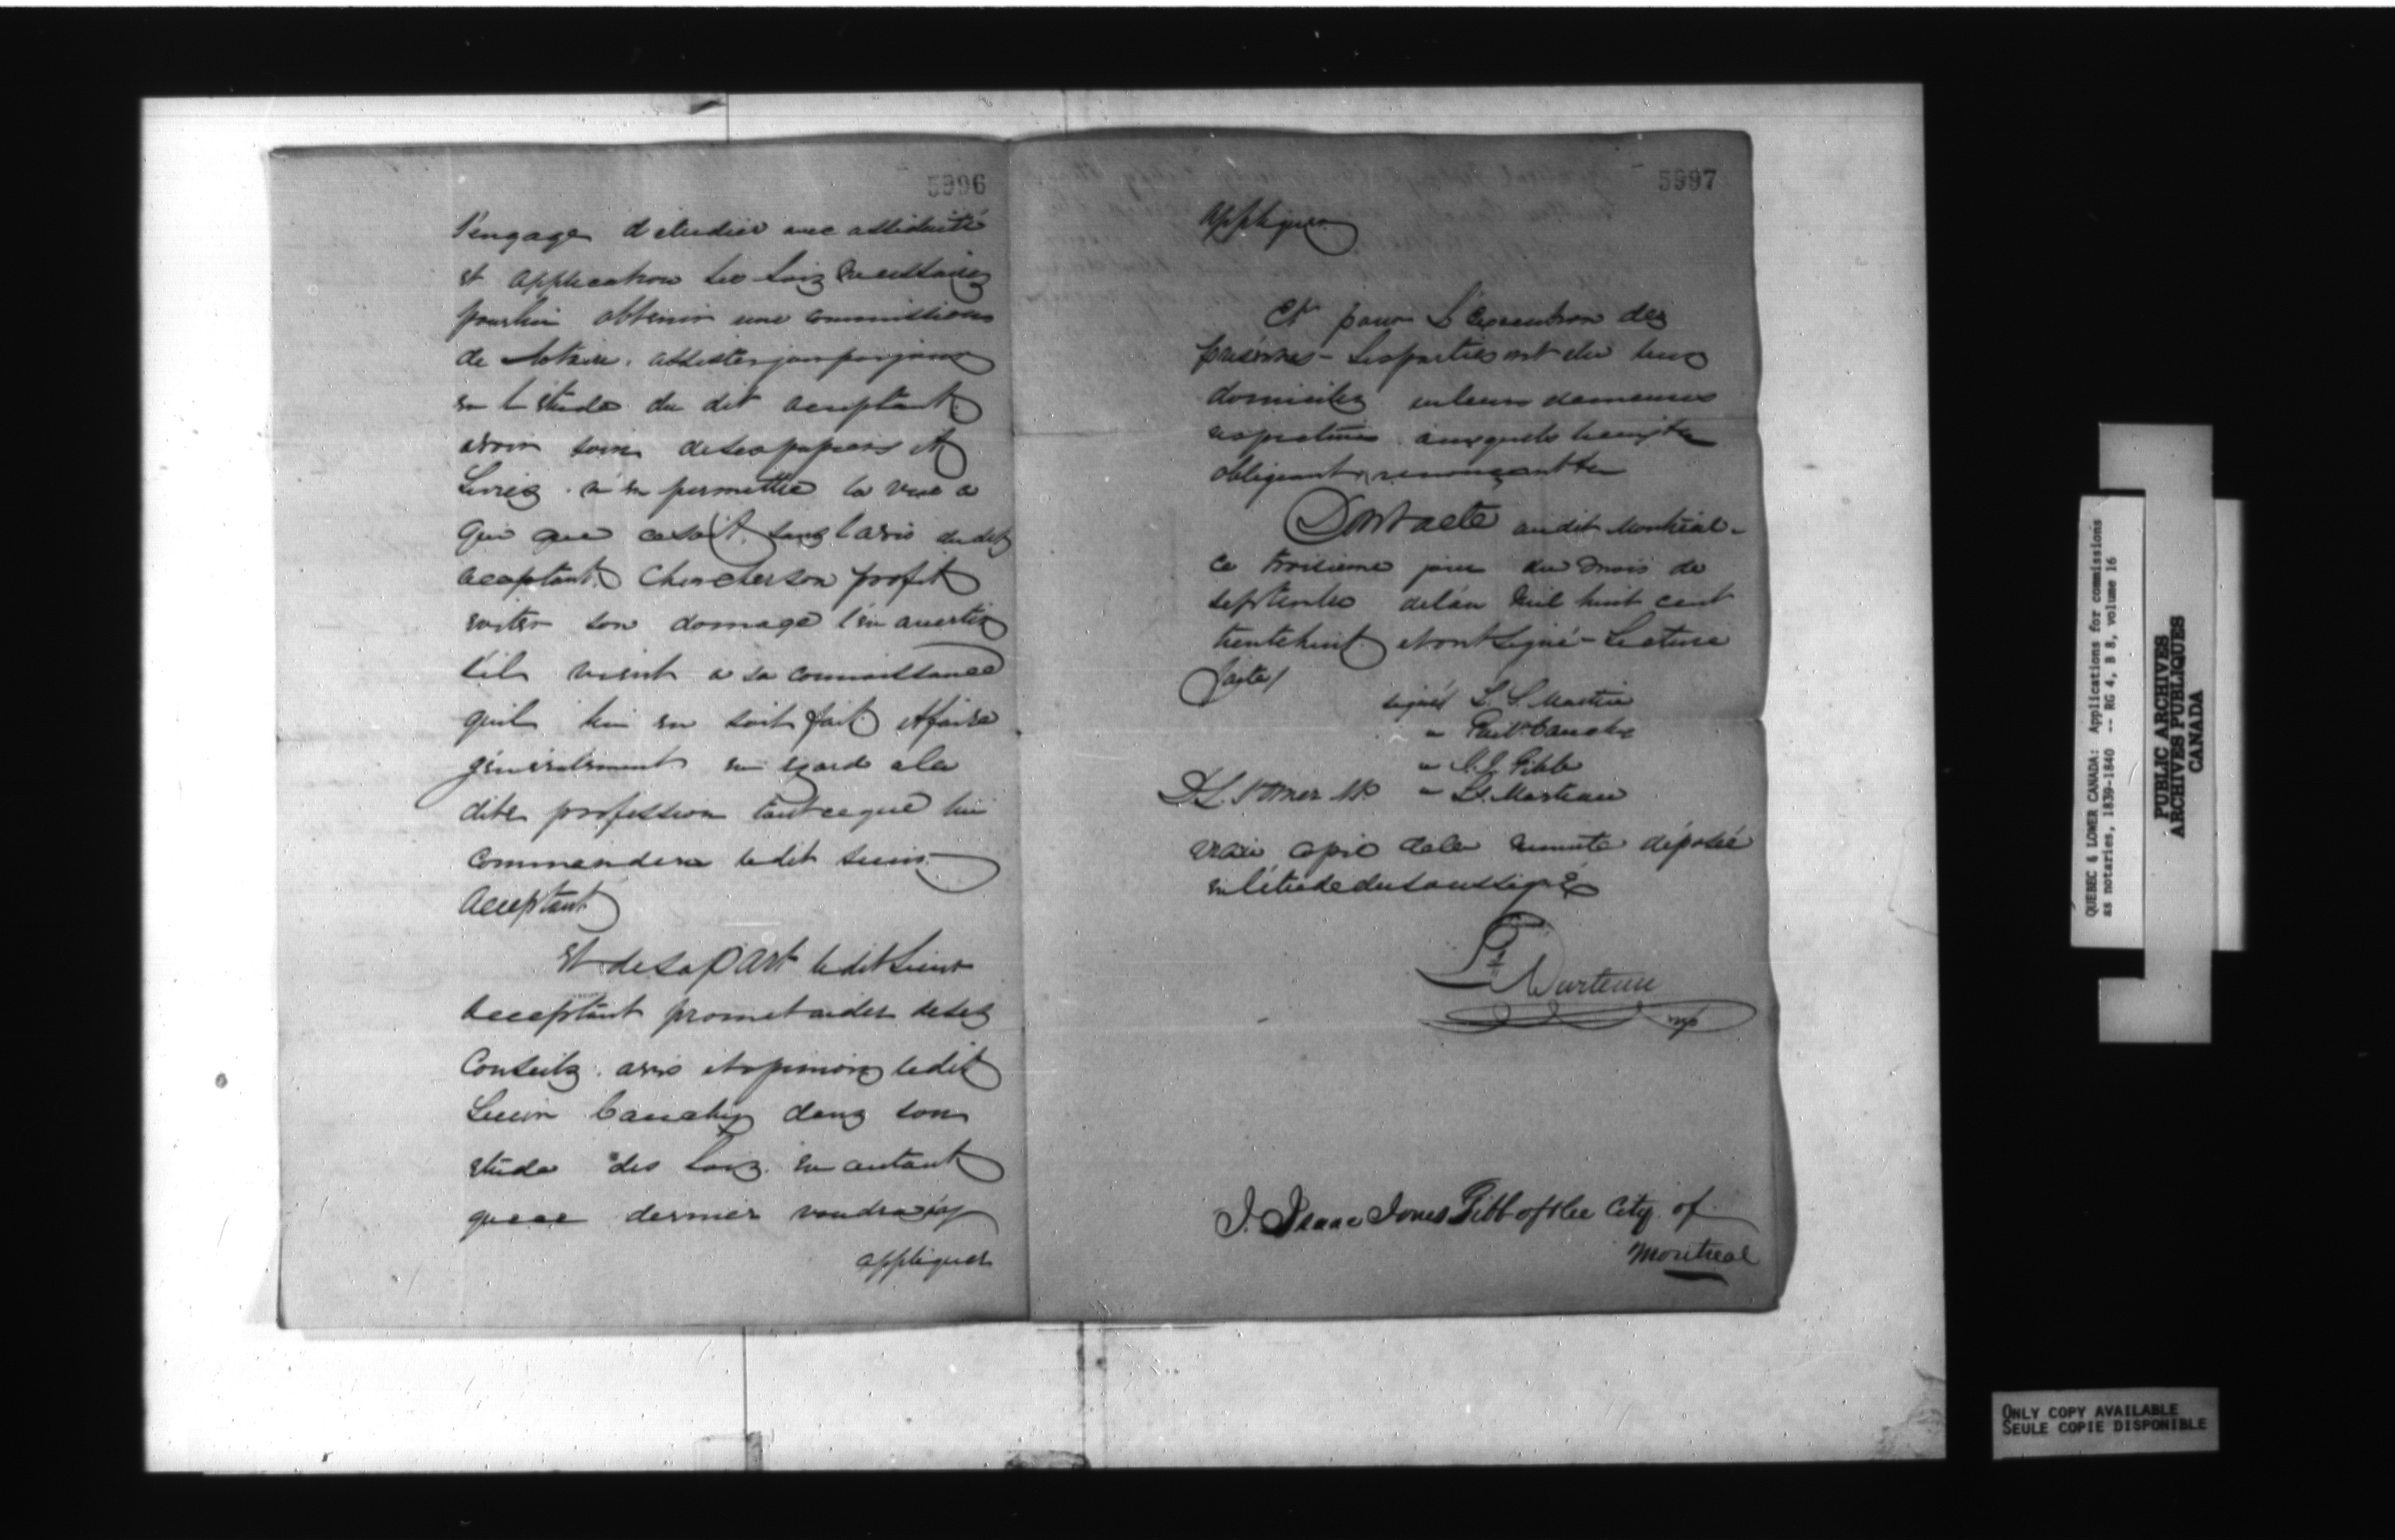 5996
s'engage d'etudier avec assiduité
et application les Loix necessaires
pour lui obtenir une commission
de Notaire. assister jour par jour
en l'étude du dit acceptant
avoir soin de ses papiers et
Livres. n'en permettre la vue a
qui que ce soit, sans l'avis du dit
acceptant chercher son profit
eviter son domage l'en avertir
s'il vient a sa connaissance
qu'il lui en soit fait et faire
généralement en egard a la
dite profession tout ce que lui
commandera le dit Sieur
acceptant
Et de sa part le dit Sieur
acceptant promet aider de ses
Conseils. avis et opinions le dit
Sieur Cauchy dans son
etude des Loix en autant
que ce dernier voudra s'y
appliquer
5997
appliquer
Et pour l'execution des
présentes - Les parties ont elu leurs
domiciles en leurs demeures
respectives auxquels lieux &a
obligeant renonçant &a
Dont acte au dit Montréal -
ce troisieme jour du mois de
septembre de l'an mil huit cent
trente huit et ont signé - Lecture
faite /
signé L. S. Martin
" Paul Cauchy
" I. J. Gibb
" Ls. Marteau
vraie copie de la minute déposée
en l'étude du soussigné
Marteau
np
I. Isaac Jones Gibb of the City of
Montreal
QUEBEC & LOWER CANADA: Applications for commissions
as notaries, 1839-1840 -- RG 4, B 8, volume 16
PUBLIC ARCHIVES
ARCHIVES PUBLIQUES
CANADA
ONLY COPY AVAILABLE
SEULE COPIE DISPONIBLE